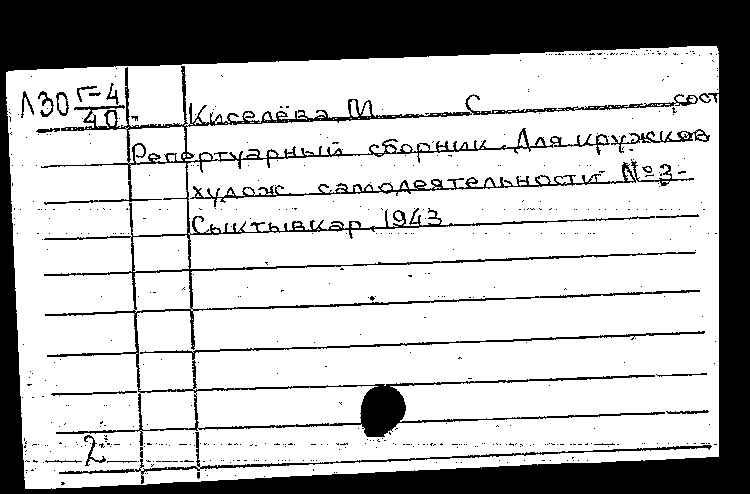 Л30 Г-4
40
Киселёва М С сост
Репертуарный сборник. Для кружков
худож самодеятельности №3-
Сыктывкар, 1943
2